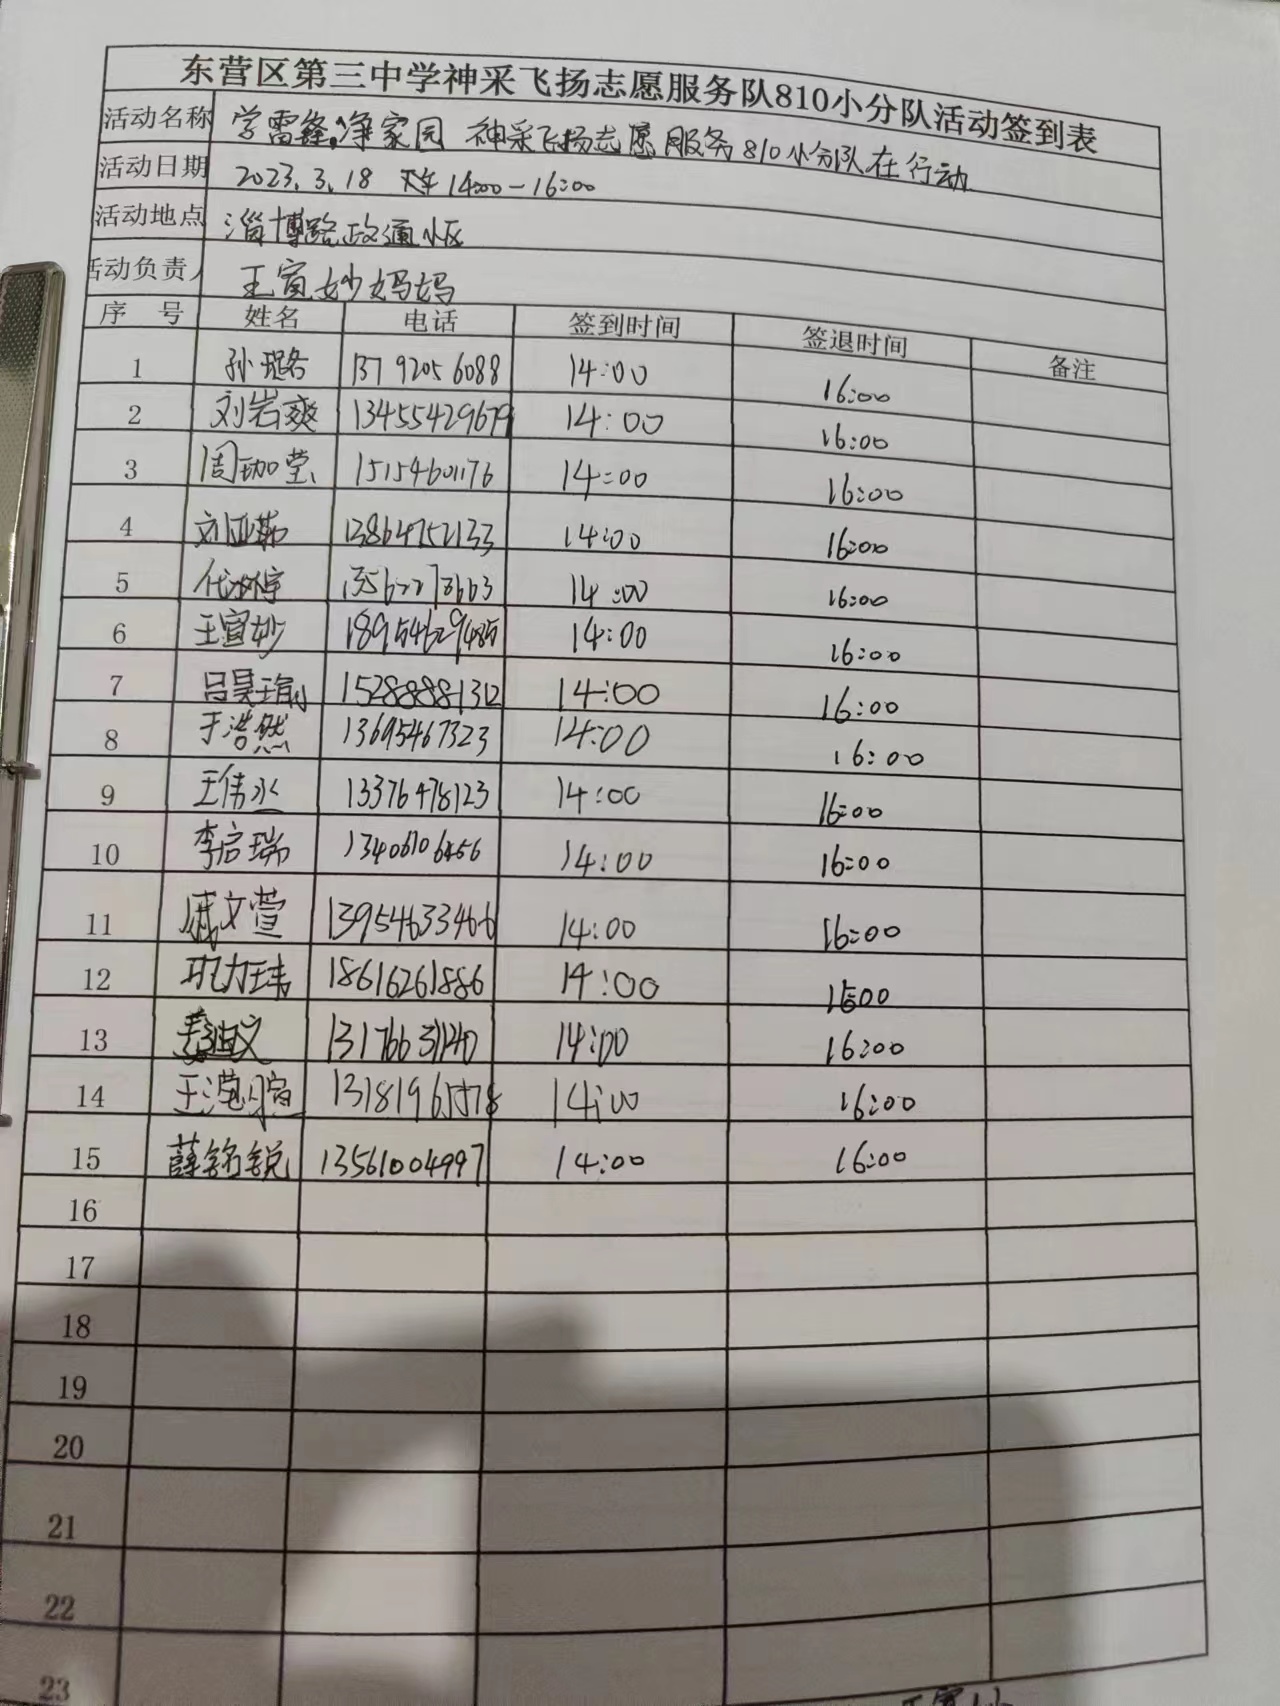 东营区第三中学神采飞扬志愿服务队810小分队活动签到表
活动名称 学雷锋,净家园 神采飞扬志愿服务810小分队在行动
活动日期 2023.3.18 下午14:00-16:00
活动地点 淄博路政通小区
活动负责人 王宣妙妈妈
序 号 姓名 电话 签到时间 签退时间 备注
1 孙珺洛 13792056088 14:00 16:00
2 刘岩爽 13455429679 14:00 16:00
3 周珈莹 15154601176 14:00 16:00
4 刘亚茹 13864752133 14:00 16:00
5 14:00 16:00
6 王宣妙 18954629485 14:00 16:00
7 吕昊瑜 15288881312 14:00 16:00
8 于浩然 13695467323 14:00 16:00
9 王伟丞 13376478123 14:00 16:00
10 李启瑞 13406106456 14:00 16:00
11 戚文萱 13954633466 14:00 16:00
12 巩力玮 18616261886 14:00 16:00
13 14:00 16:00
14 14:00 16:00
15 薛铭锐 13561004997 14:00 16:00
16
17
18
19
20
21
22
23